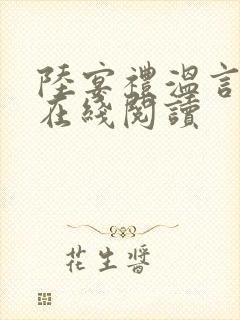 陸宴禮溫言
在綫閱讀
花生醬